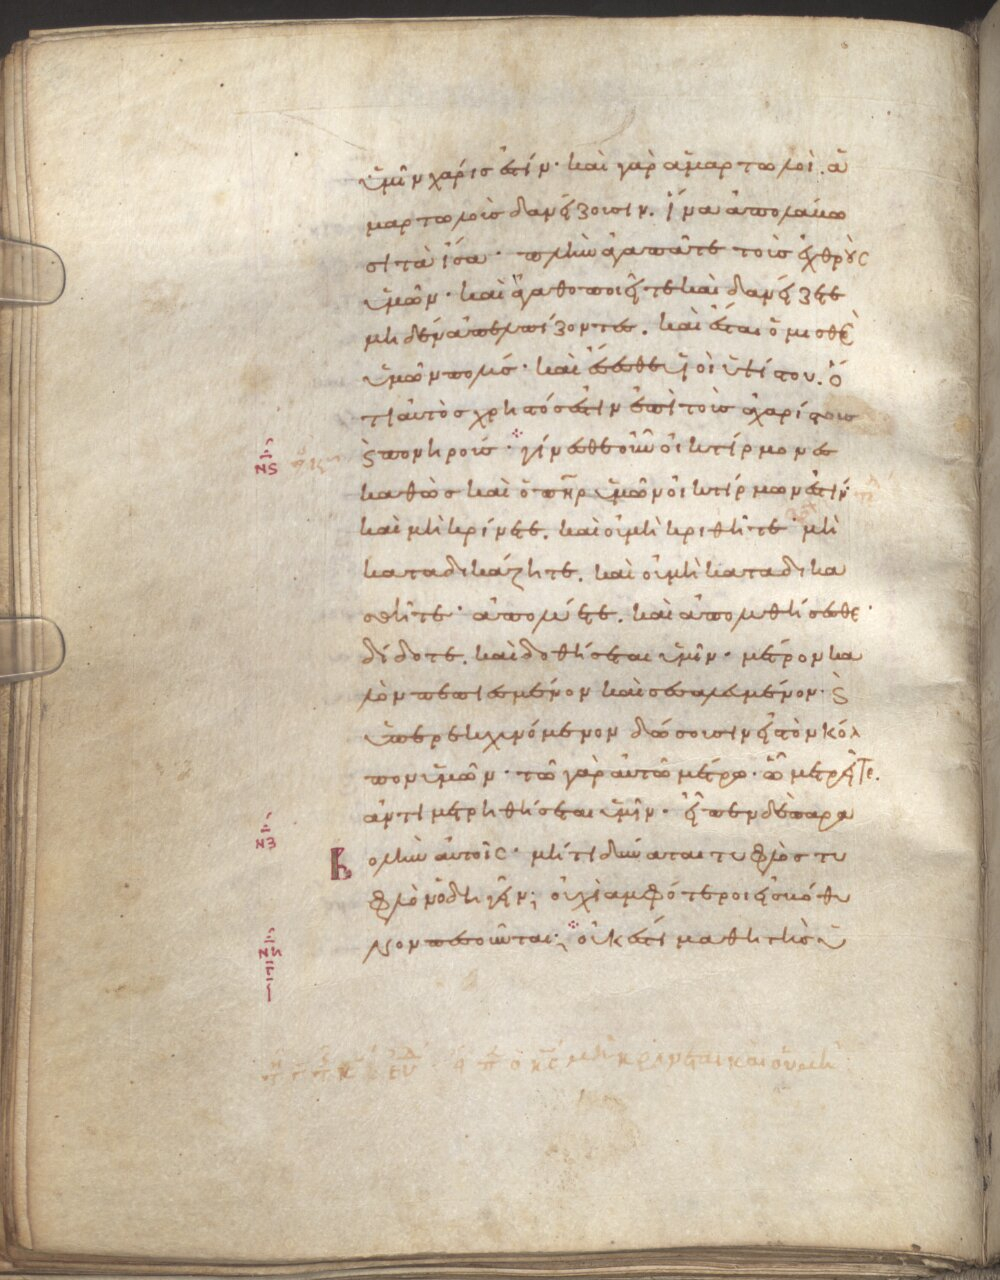 ὑμῖν χάρις ἐστίν· καὶ γὰρ ἁμαρτωλοὶ. ἁ
μαρτωλοῖς δανείζουσιν. ἵνα ἀπολάβω
σι τὰ ἴσα· πλὴν ἀγαπᾶτε τοὺς ἐχθροὺς
ὑμῶν· καὶ ἀγαθοποιεῖτε καὶ δανείζετε
μηδὲν ἀπελπίζοντες. καὶ ἔσται ὁ μισθὸς
ὑμῶν πολύς· καὶ ἔσεσθε υἱοὶ ὑψίστου. ὅ
τι αὐτὸς χρηστός ἐστιν ἐπὶ τοὺς ἀχαρίστους
ϗ πονηρούς· γίνεσθε οὖν οἰκτίρμονες
ΝϚ
καθὼς καὶ ὁ πηρ ὑμῶν οἰκτίρμων ἐστίν·
καὶ μὴ κρίνετε. καὶ οὐ μὴ κριθῆτε· μὴ
καταδικάζητε. καὶ οὐ μὴ καταδικα
σθῆτε· ἀπολύετε. καὶ ἀπολυθήσεσθε·
δίδοτε. καὶ δοθήσεται ὑμῖν· μέτρον κα
λὸν πεπιεσμένον καὶ σεσαλευμένον· ϗ
ὑπερεκχυνόμενον δώσουσιν εἰς τὸν κόλ
πον ὑμῶν· τῶ γὰρ αὐτῶ μέτρω. ὧ μετρεῖτε.
ἀντιμετρηθήσεται ὑμῖν· εἶπεν δὲ παρα
ΝΖ
βολὴν αὐτοῖς· μήτι δύναται τυφλὸς τυ
φλὸν ὁδηγεῖν; οὐχὶ ἀμφότεροι εἰς βόθυ
νον πεσοῦνται; οὐκ ἔστι μαθητὴς ὑ
ΝΗ